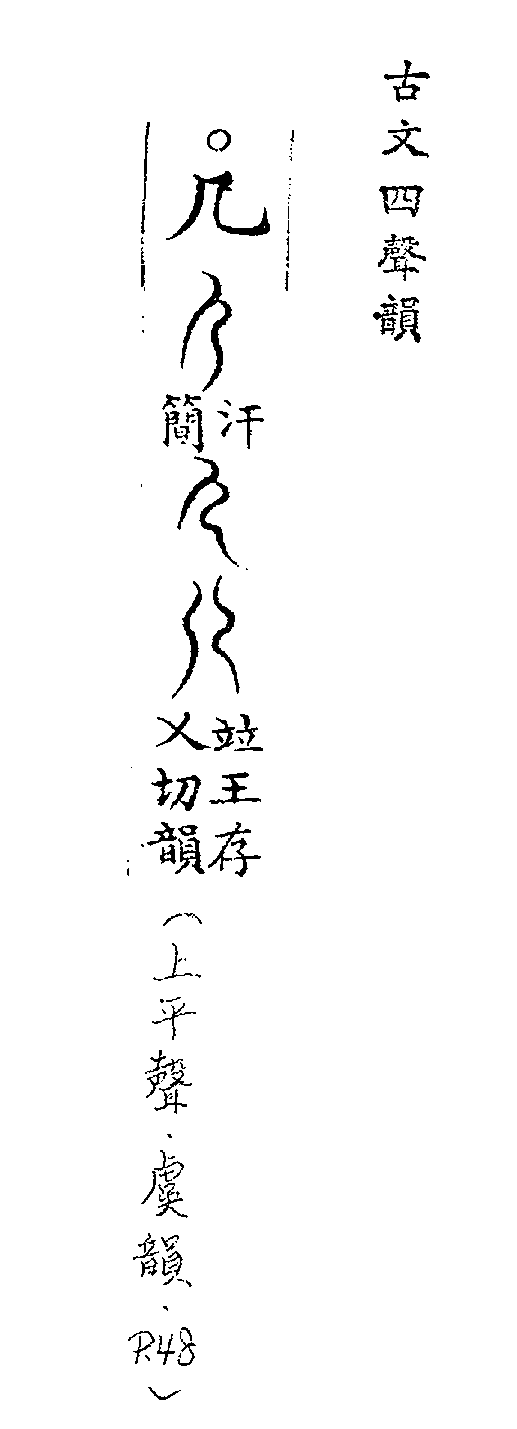 古文四聲韻
○𠘧
汗
簡
竝王存
乂切韻
（上平聲．虞韻．P.48）